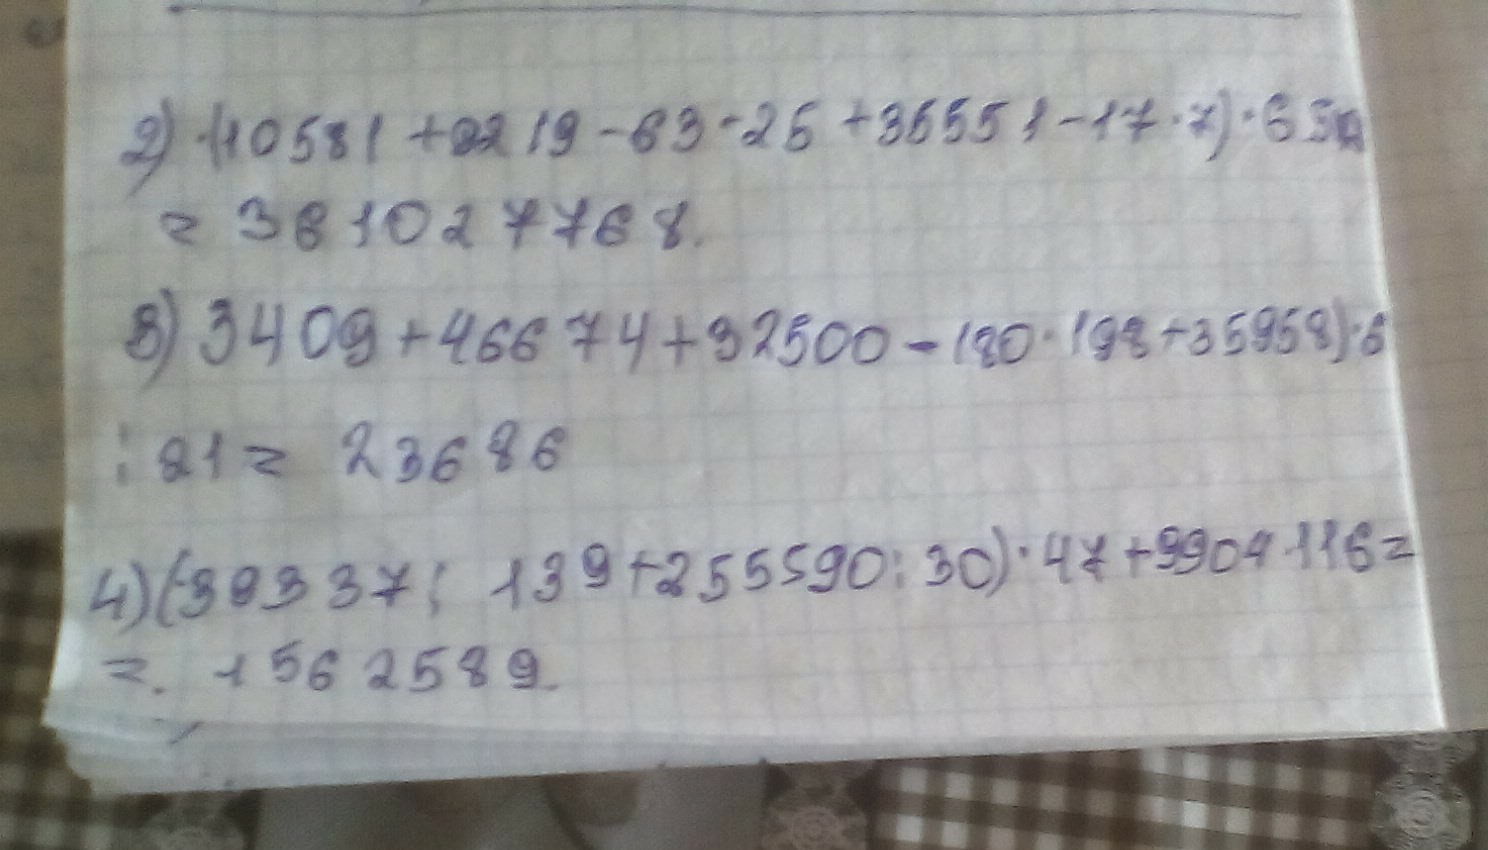 2) (10581 + 2219 - 63 · 25 + 35551 - 17 · 7) · 65
= 361027768.
3) 3409 + 46674 + 92500 - 180 · 198 + 35958) · 6
: 21 = 23686
4) (39337 : 139 + 255590 : 30) · 47 + 9904 · 116 =
= 1562589.